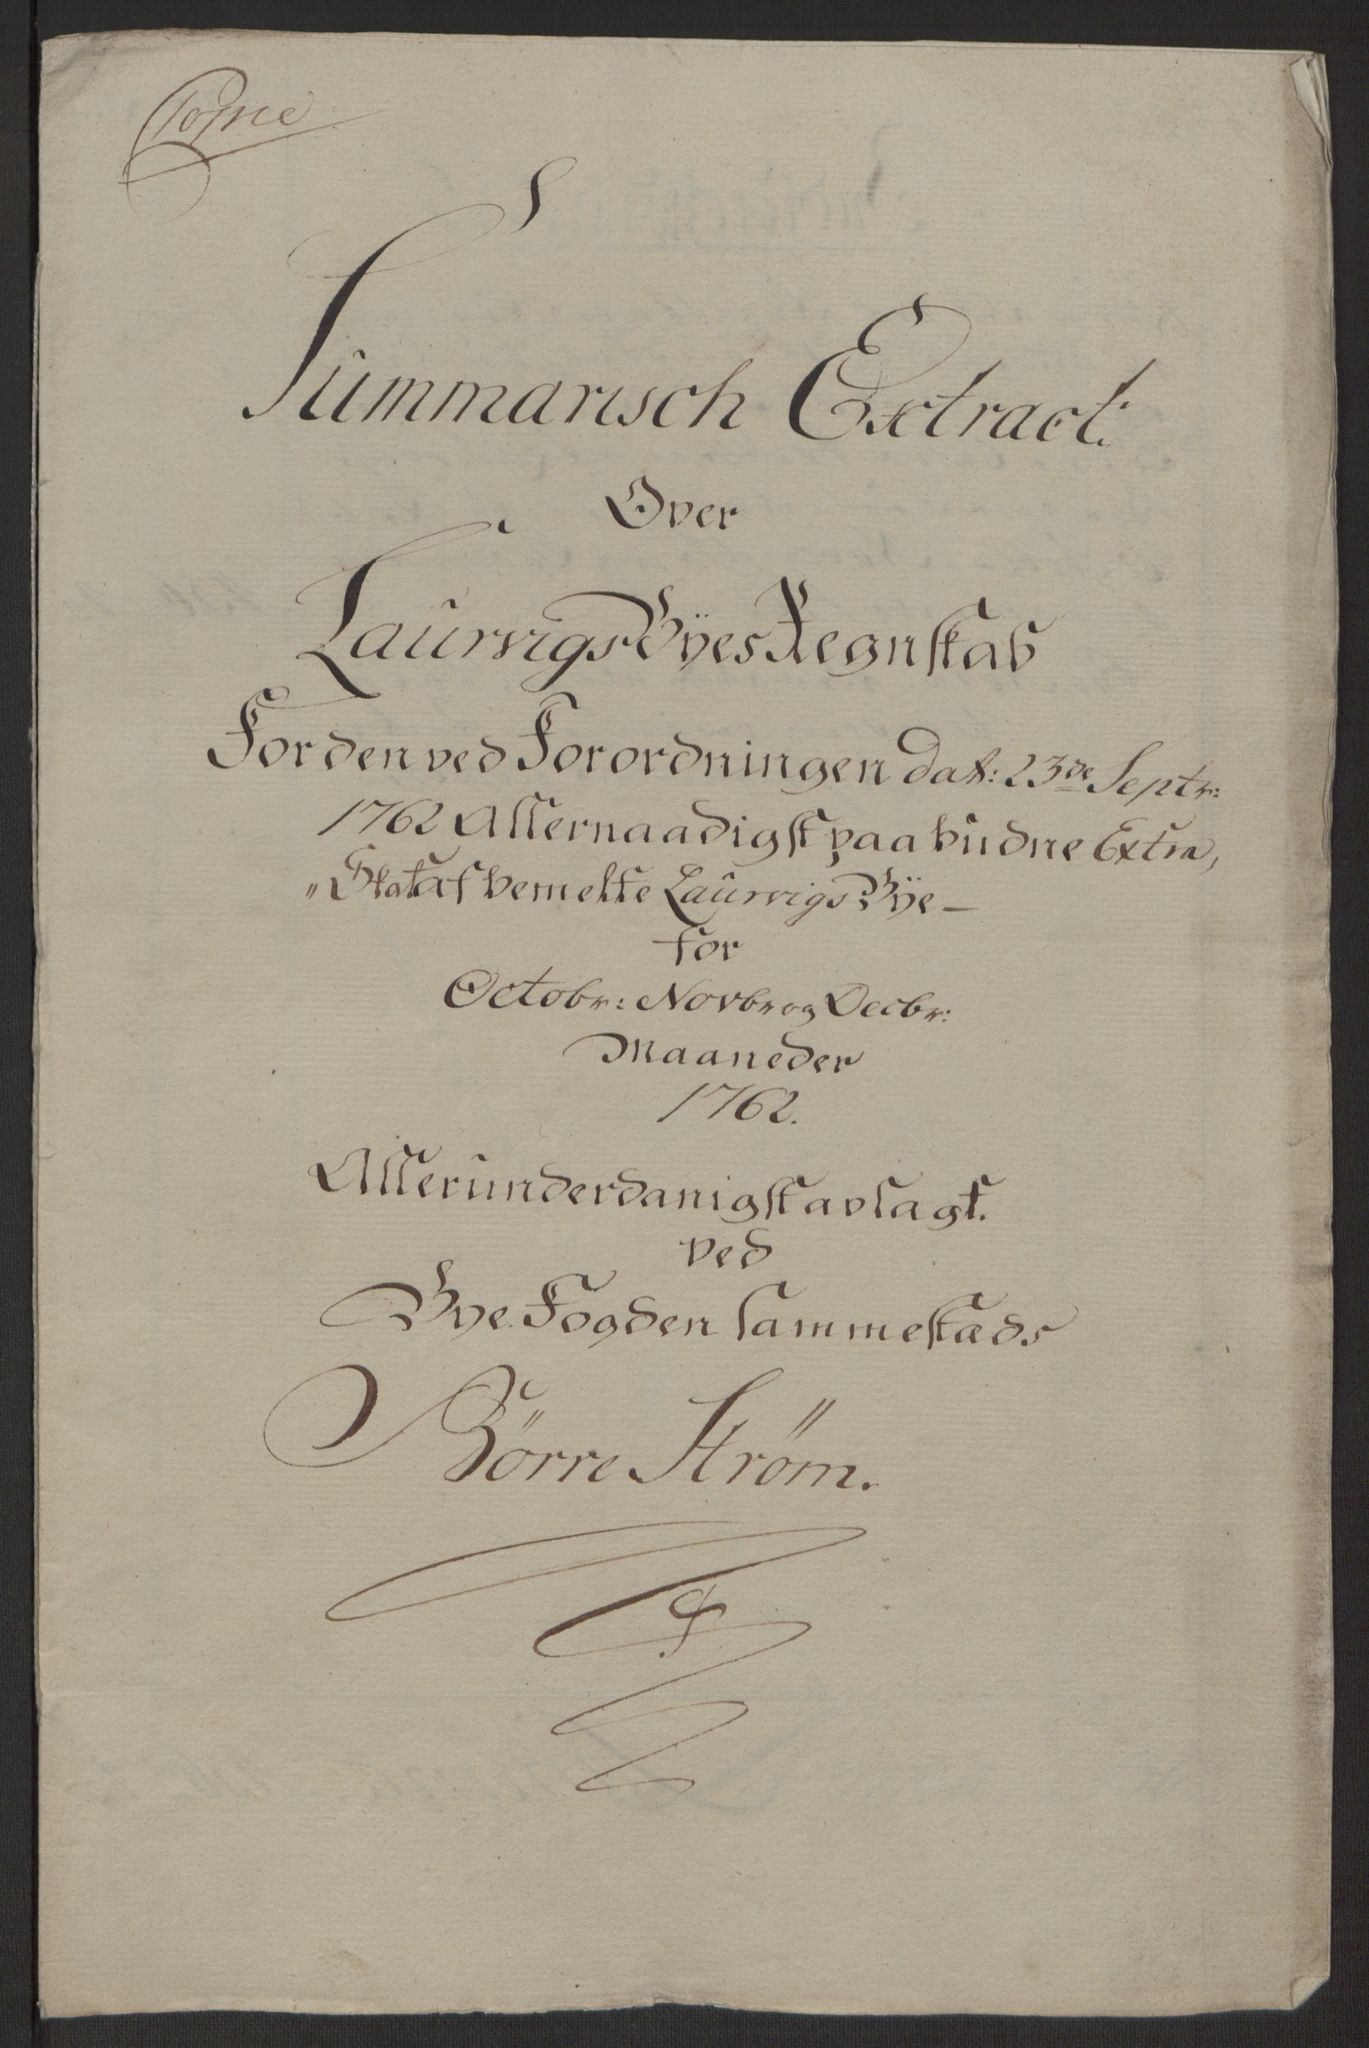 Copie
Summarisch Extract.
Over
Laurvigs Byes Regnskab
For den ved Forordningen dat: 23de Septr:
1762 Allernaadigst paabudne Extra,
"Skat af bemelte Laurvigs Bye —
for
Octobr: Novbr og Decbr:
Maaneder
1762.
Allerunderdanigst avlagt.
ved
Bye Fogden sammestæds
Börre Ström.